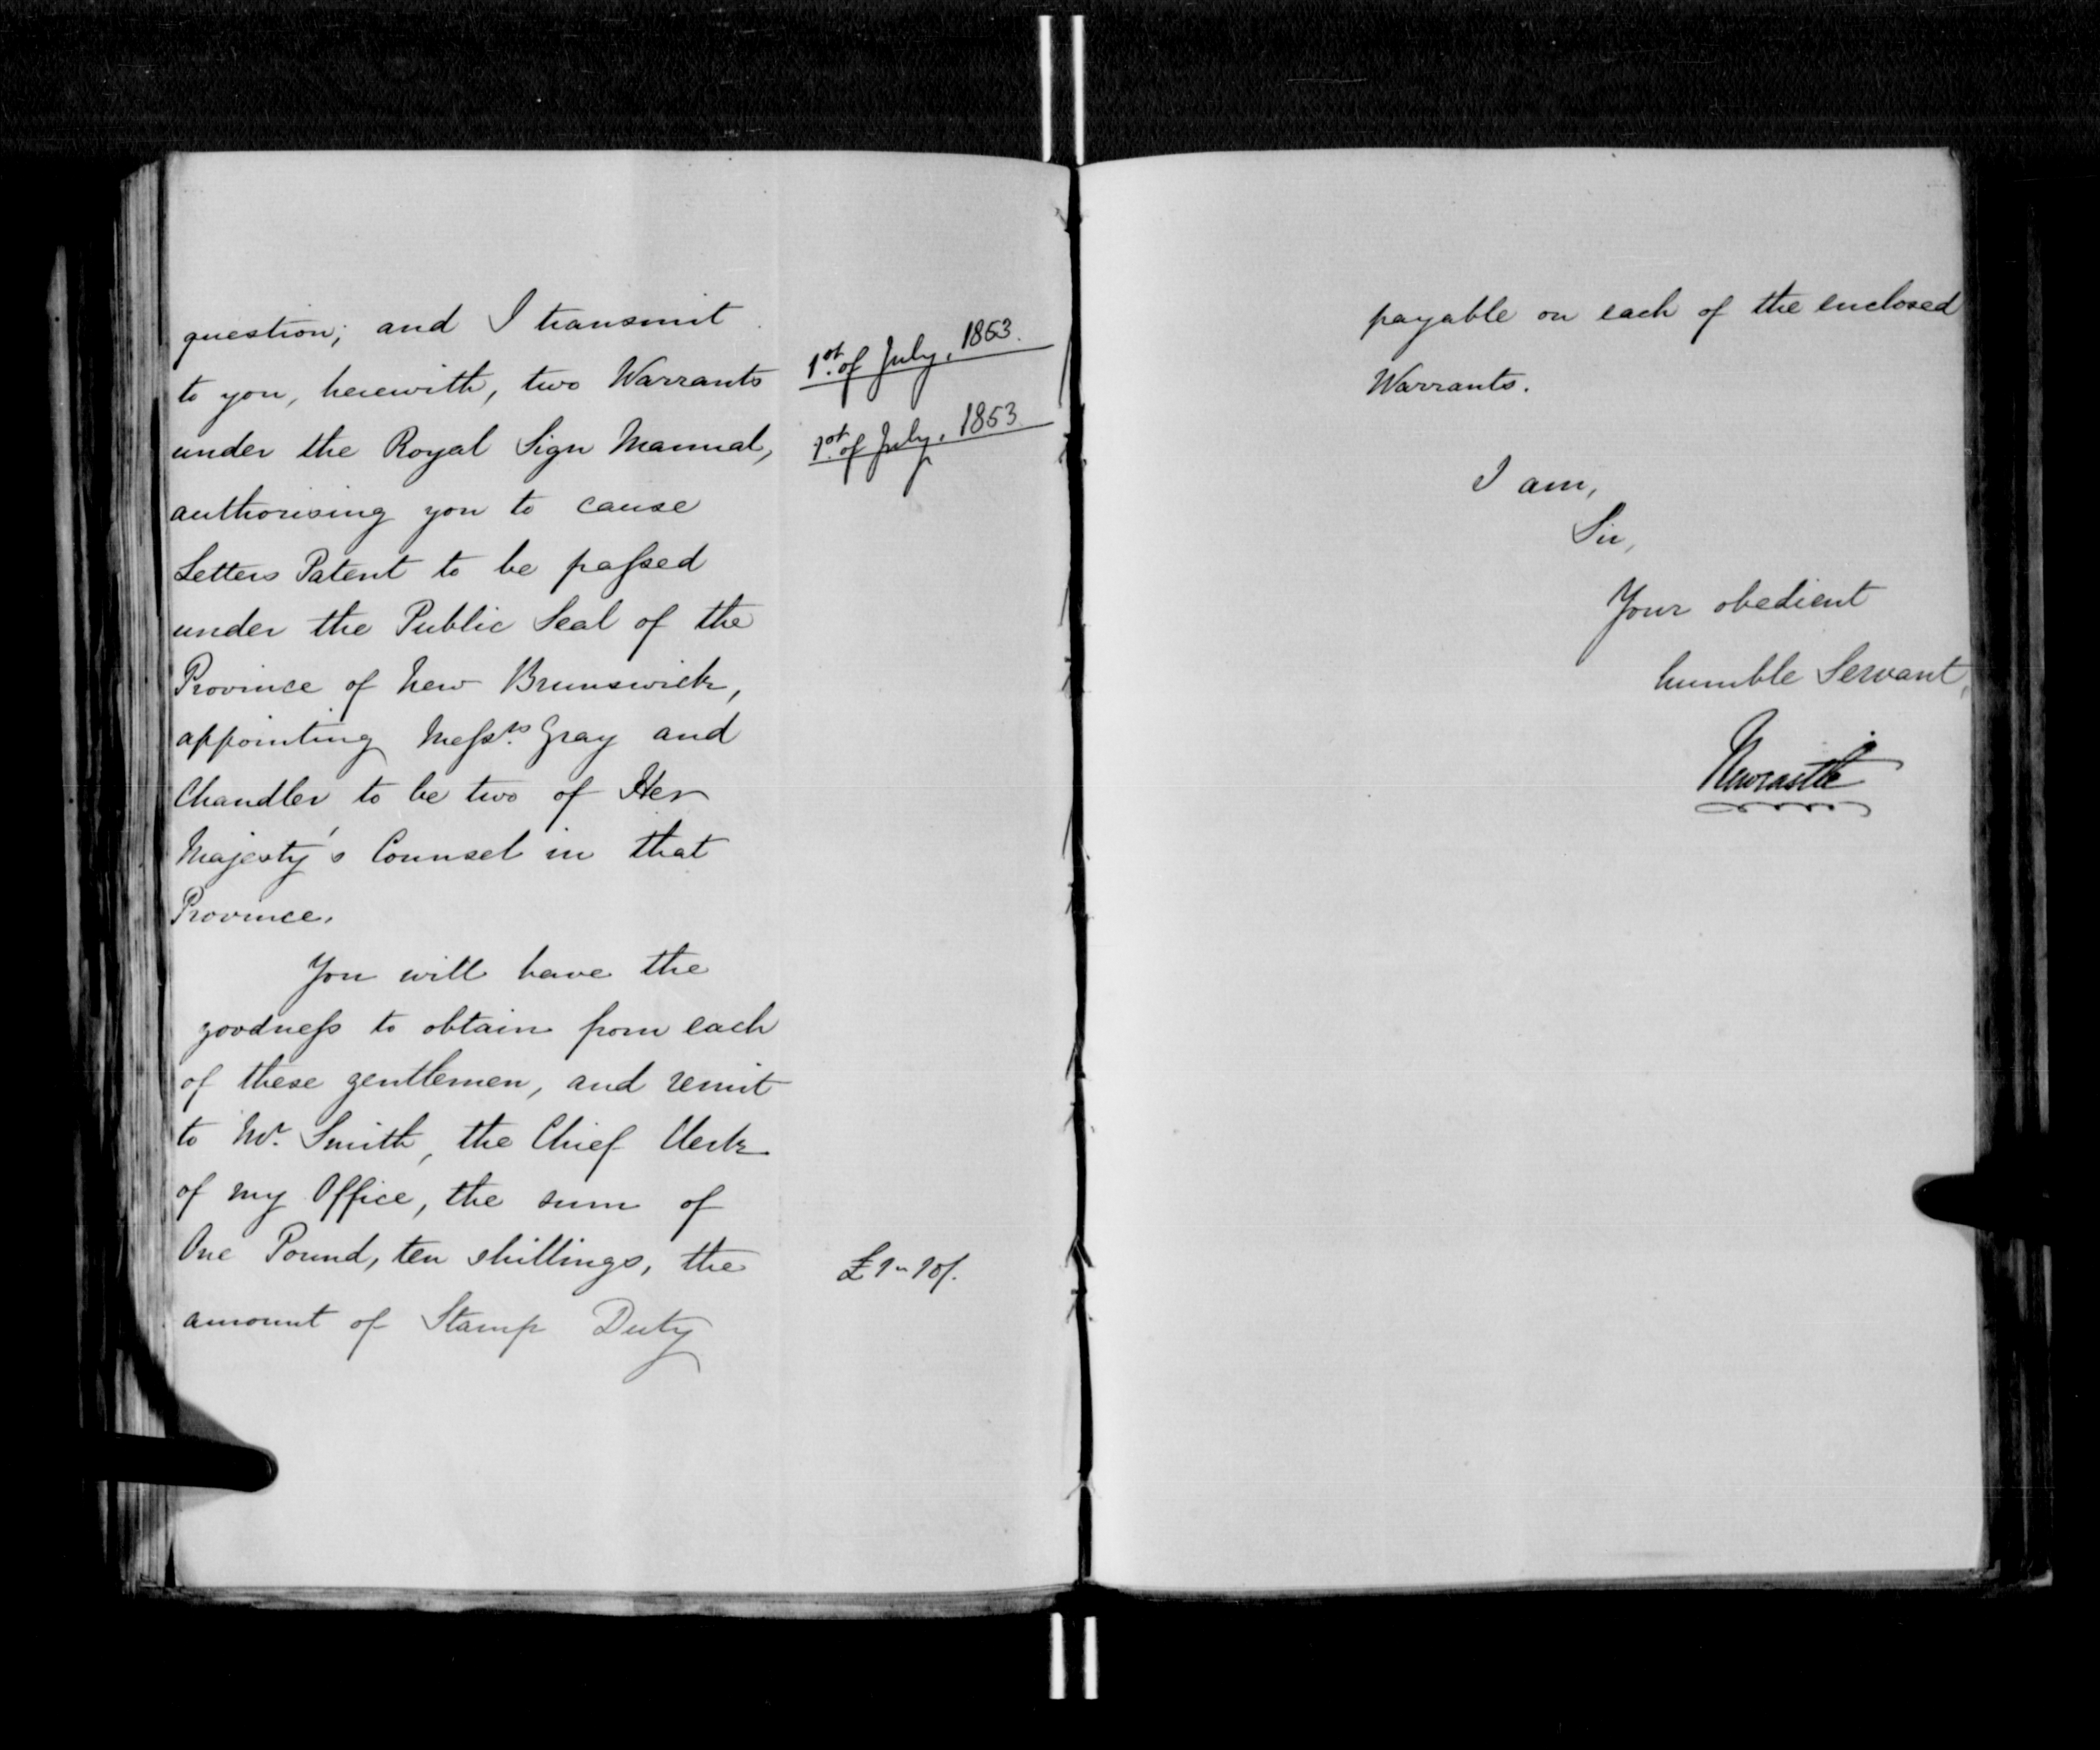 question; and I transmit
to you, herewith, two Warrants
under the Royal Sign Manual,
authorising you to cause
Letters Patent to be passed
under the Public Seal of the
Province of New Brunswick,
appointing Mess.rs Gray and
Chandler to be two of Her
Majesty's Counsel in that
Province.
You will have the
goodness to obtain from each
of these gentlemen, and remit
to Mr. Smith, the Chief Clerk
of my Office, the sum of
One Pound, ten shillings, the
amount of Stamp Duty
1st of July, 1853.
1st of July, 1853.
£1〃10/.
payable on each of the enclosed
Warrants.
I am,
Sir,
Your obedient
humble Servant,
Newcastle